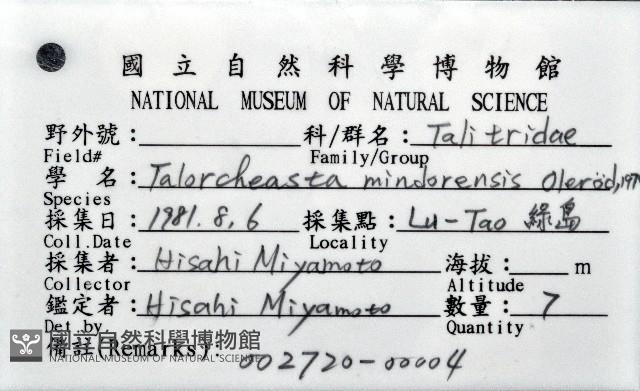 國立自然科學博物館
NATIONAL MUSEUM OF NATURAL SCIENCE
野外號： 科/群名：Talitridae
Field# Family/Group
學 名：Talorcheasta mindorensis Oleröd, 197
Species
採集日：1981.8.6 採集點：Lu-Tao 綠島
Coll.Date Locality
採集者：Hisahi Miyamoto 海拔： m
Collector Altitude
鑑定者：Hisahi Miyamoto 數量：7
Det.by Quantity
國立自然科學博物館
備註(Remarks)：002720-00004
NATIONAL MUSEUM OF NATURAL SCIENCE